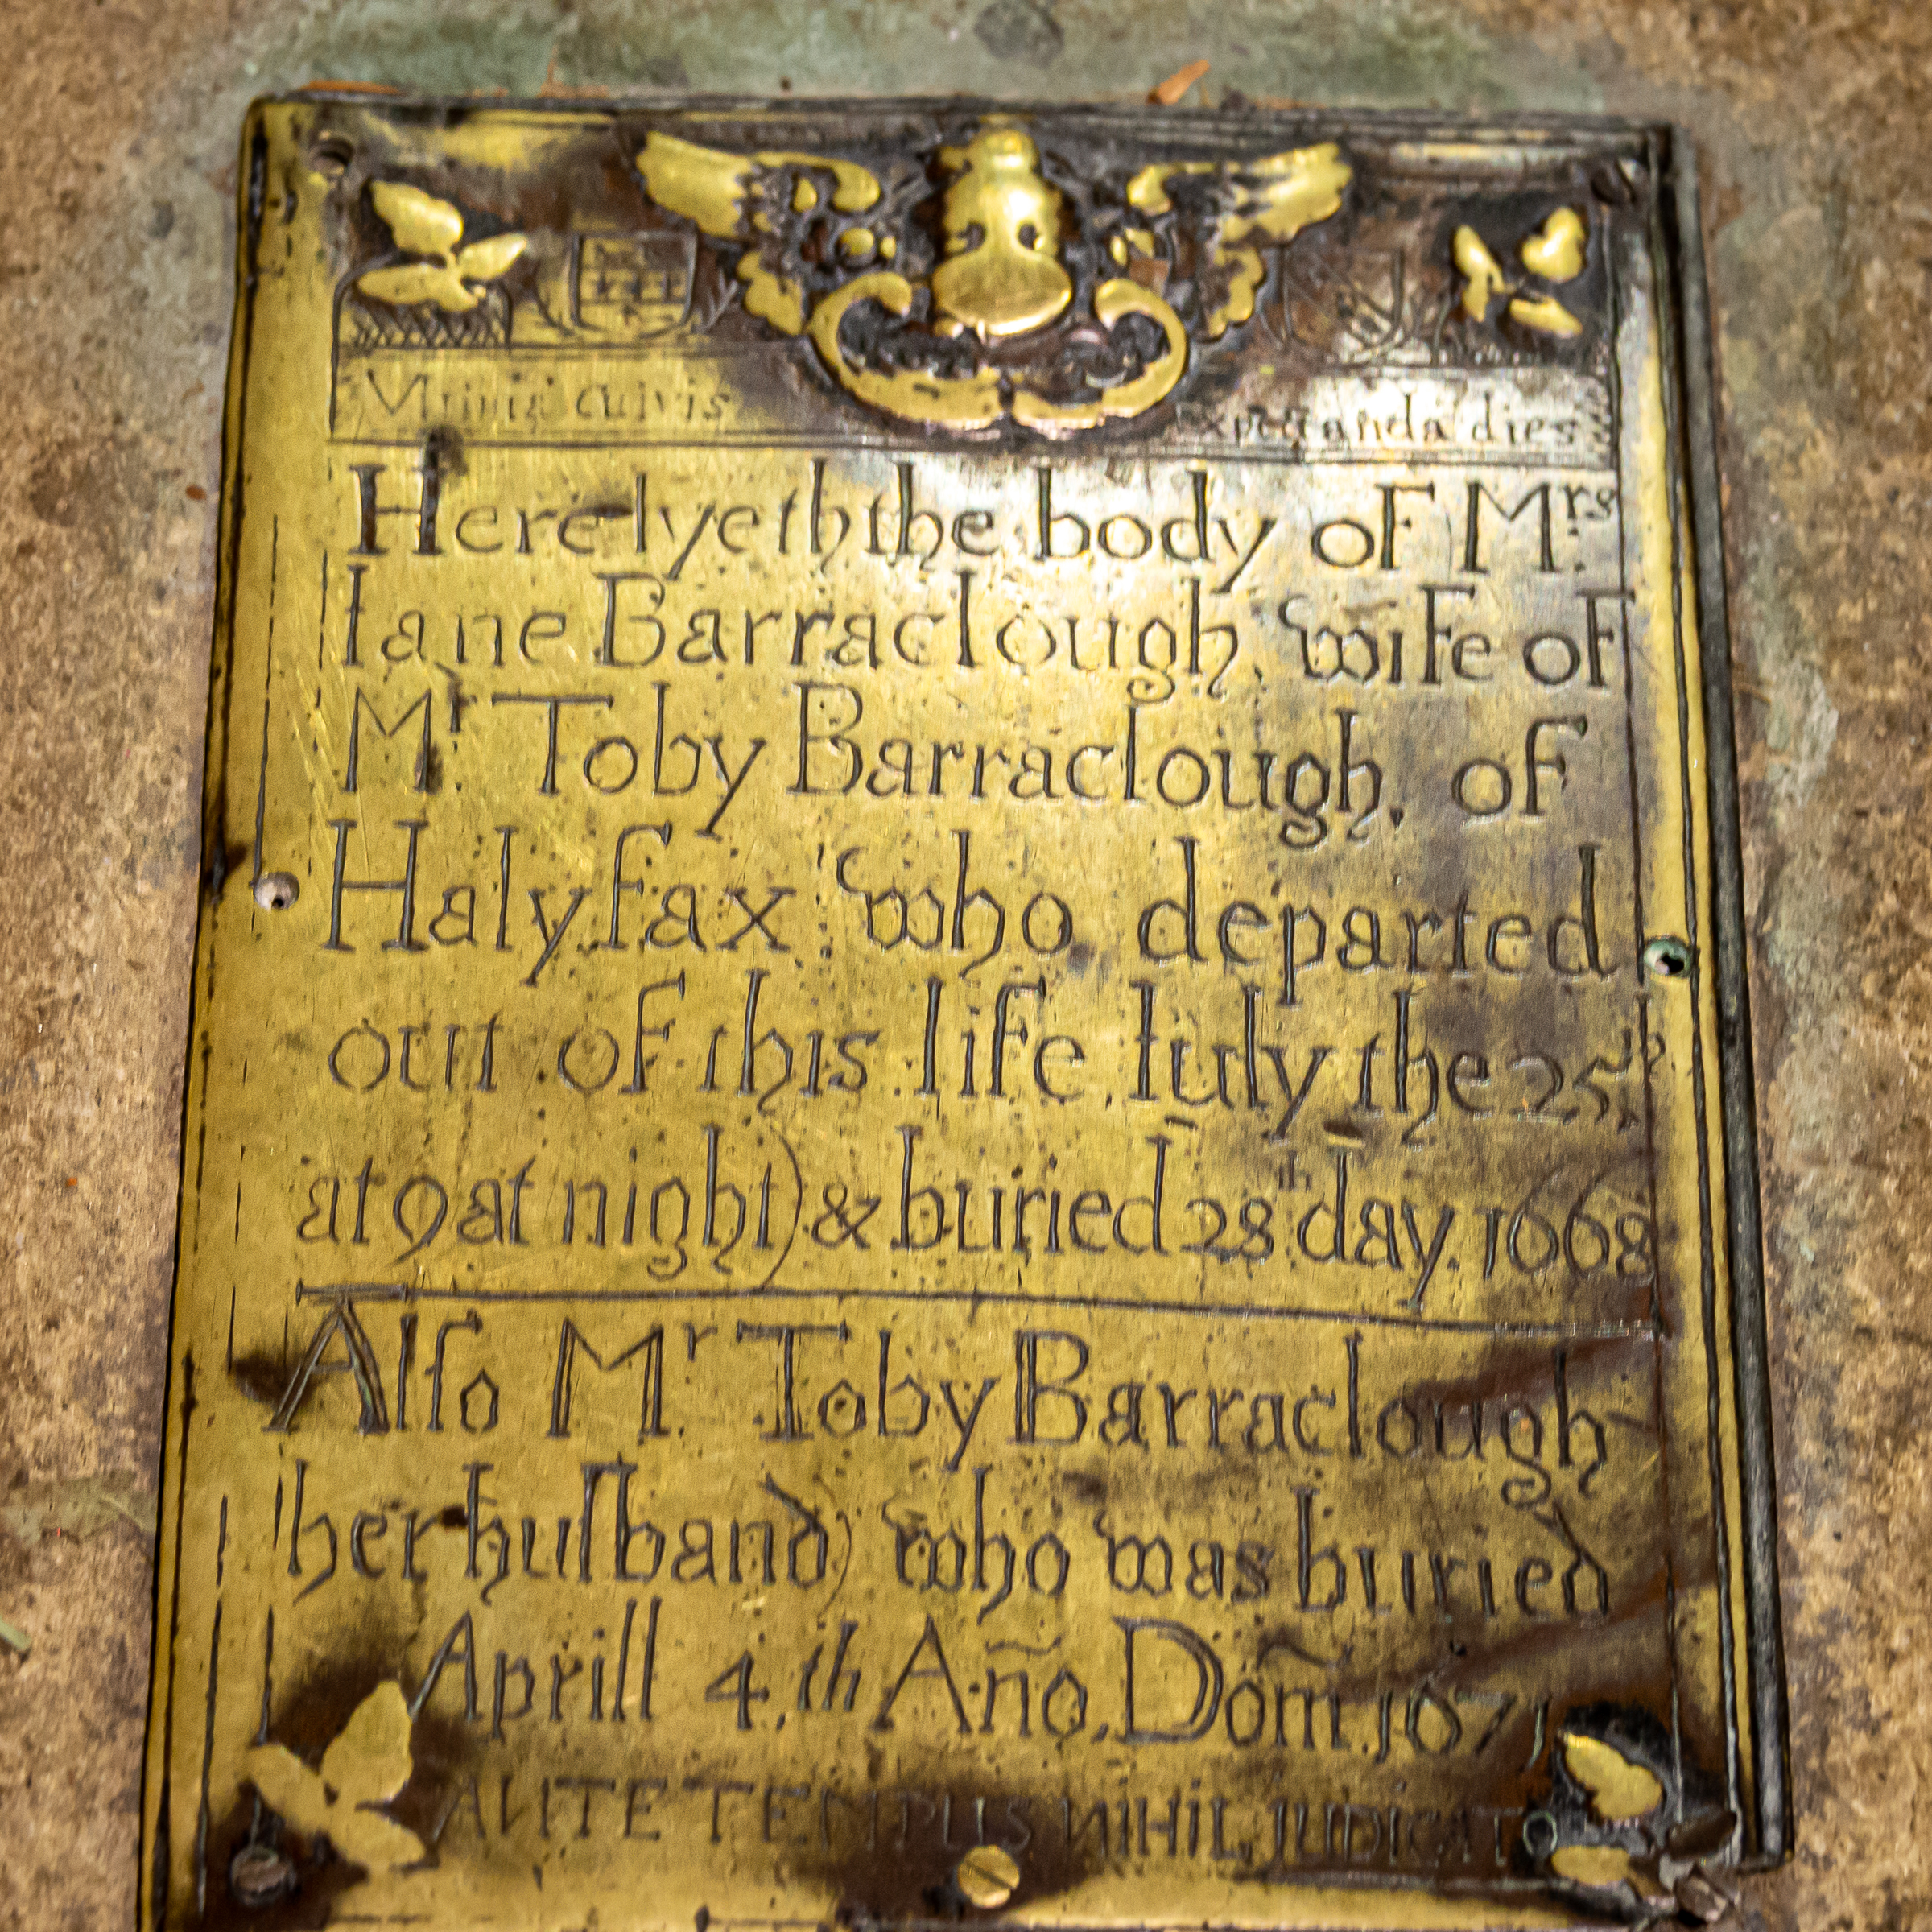 Ultima cuivis Expectanda dies
Here lyeth the body of Mrs
Iane Barraclough, wife of
Mr Toby Barraclough, of
Halyfax who departed
out of this life Iuly the 25th
at 9 at night) & buried 28th day. 1668
Alſo Mr. Toby Barraclough
her huſband) who was buried
Aprill 4.th Año. Dom̃. 1671
ANTE TEMPUS NIHIL IUDICATO